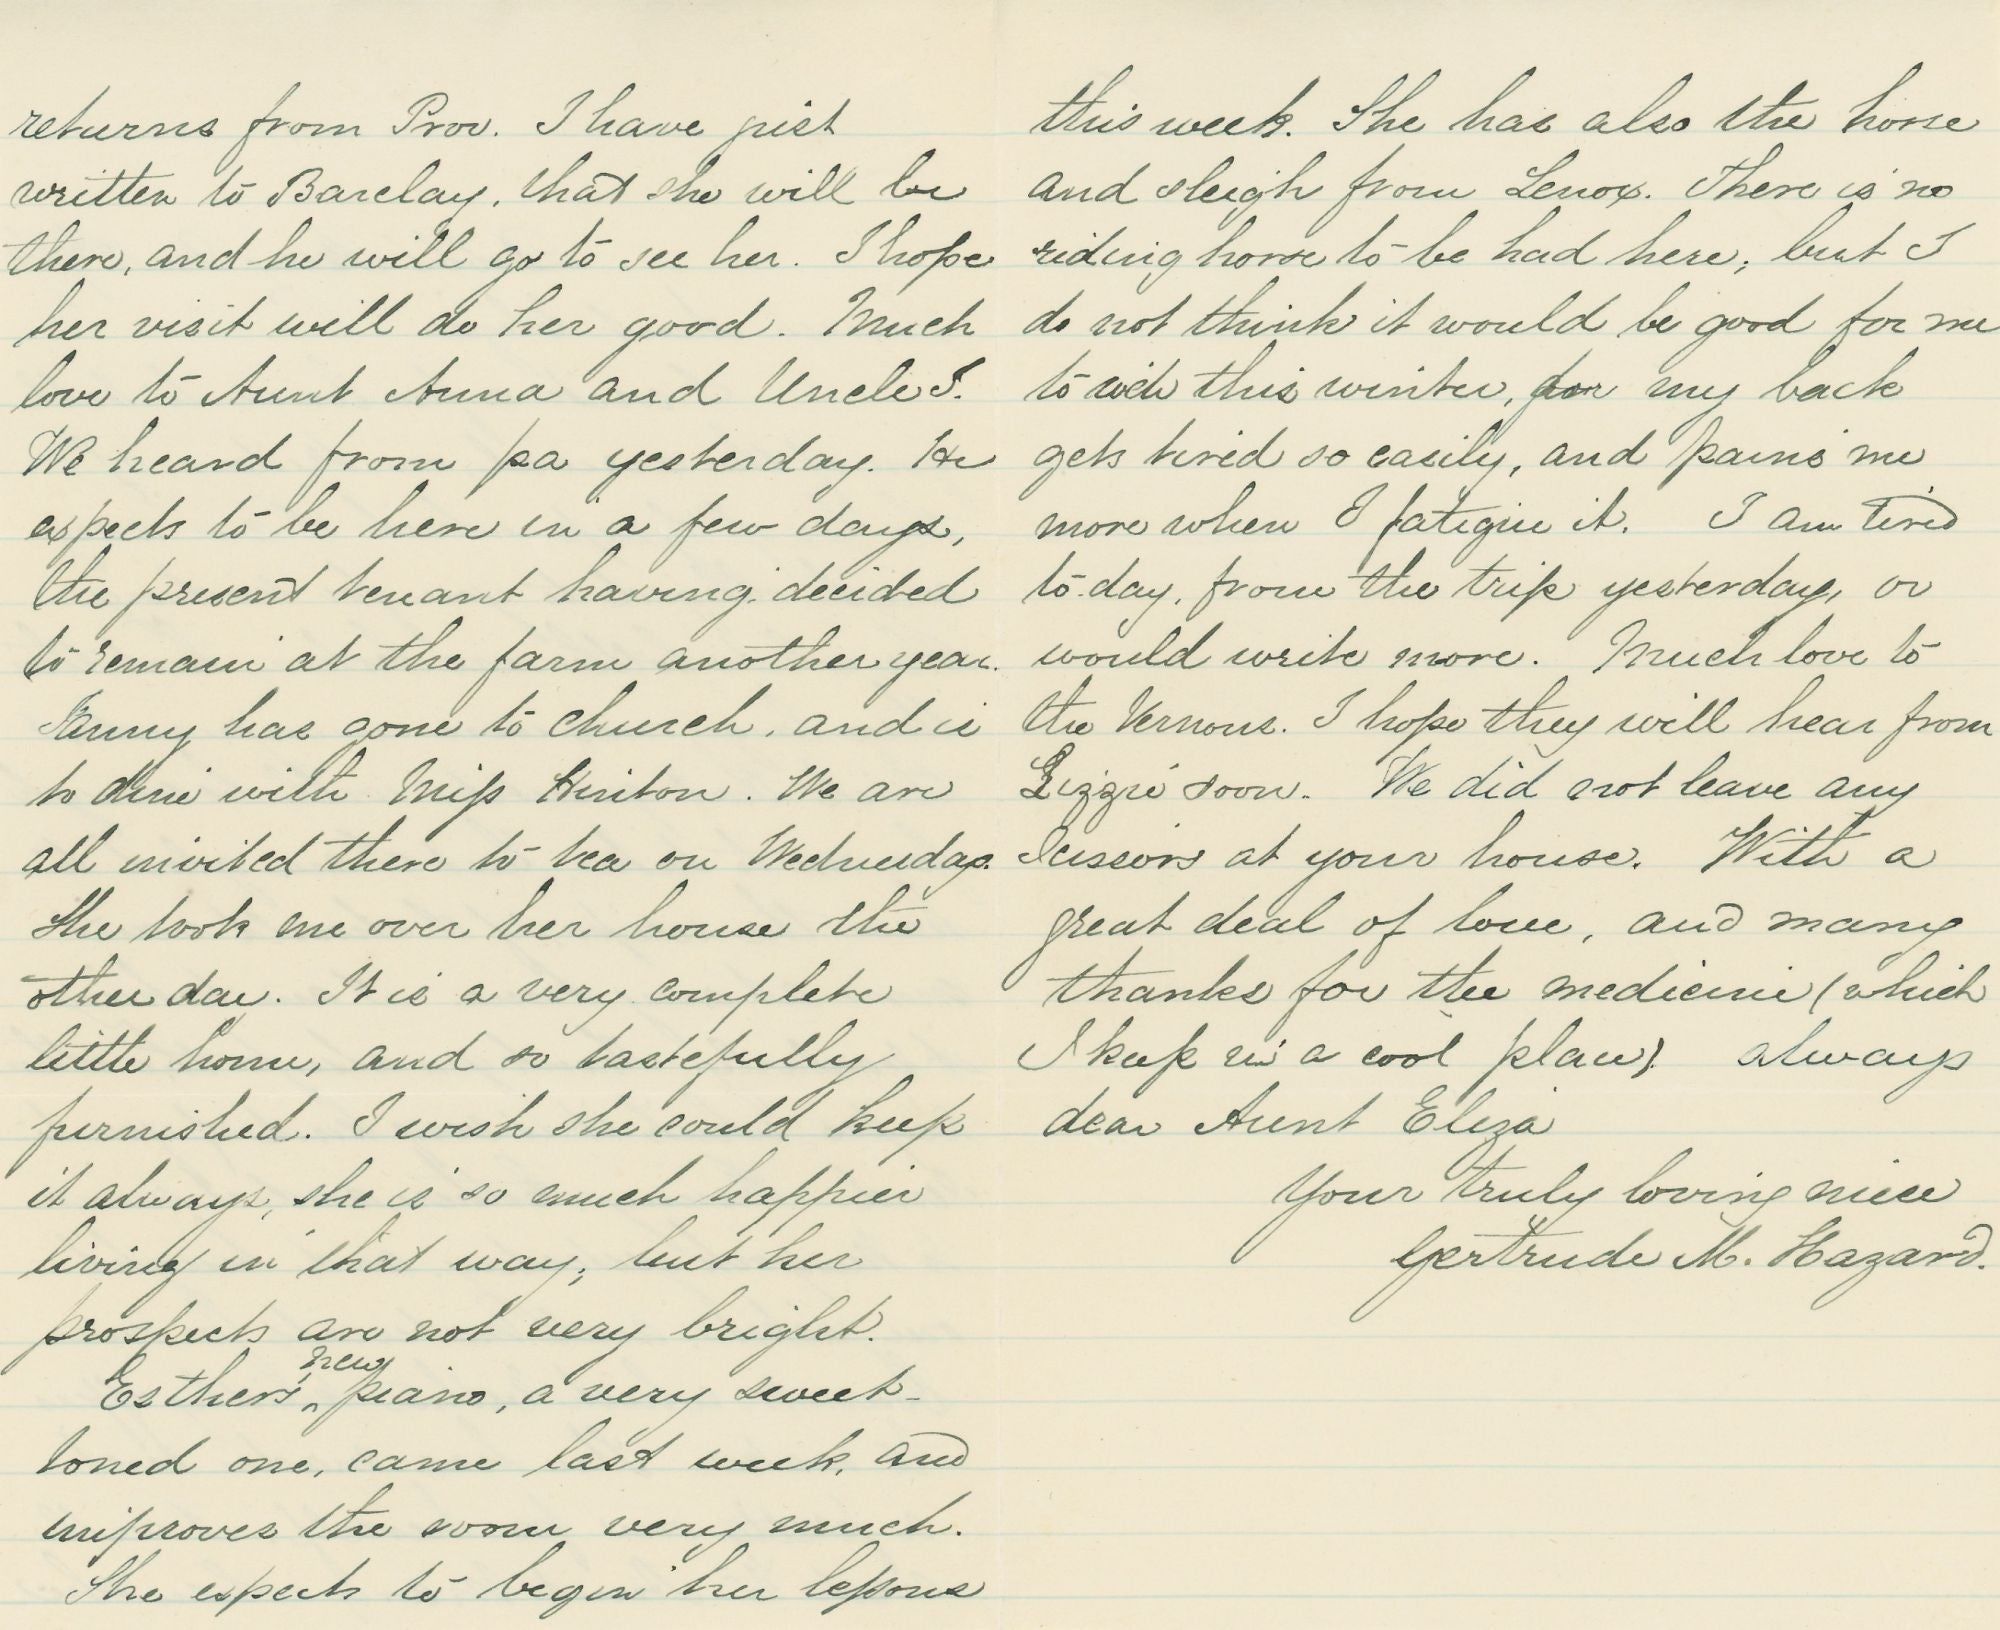 returns from Prov. I have just
written to Barclay, that she will be
there, and he will go to see her. I hope
her visit will do her good. Much
love to Aunt Anna and Uncle T.
We heard from pa yesterday. He
expects to be here in a few days,
the present tenant having decided
to remain at the farm another year.
Fanny has gone to church, and is
to dine with Miss Hinton. We are
all invited there to tea on Wednesday.
She took me over her house the
other day. It is a very complete
little home, and so tastefully
furnished. I wish she could keep
it always, she is so much happier
living in that way; but her
prospects are not very bright.
Esther's new piano, a very sweet-
toned one, came last week, and
improves the room very much.
She expects to begin her lessons
this week. She has also the horse
and sleigh from Lenox. There is no
riding horse to be had here, but I
do not think it would be good for me
to ride this winter, for my back
gets tired so easily, and pains me
more when I fatigue it. I am tired
to-day, from the trip yesterday, or
would write more. Much love to
the Vernons. I hope they will hear from
Lizzie soon. We did not leave any
scissors at your house. With a
great deal of love, and many
thanks for the medicine (which
I keep in a cool place) always
dear Aunt Eliza
Your truly loving niece
Gertrude M. Hazard.